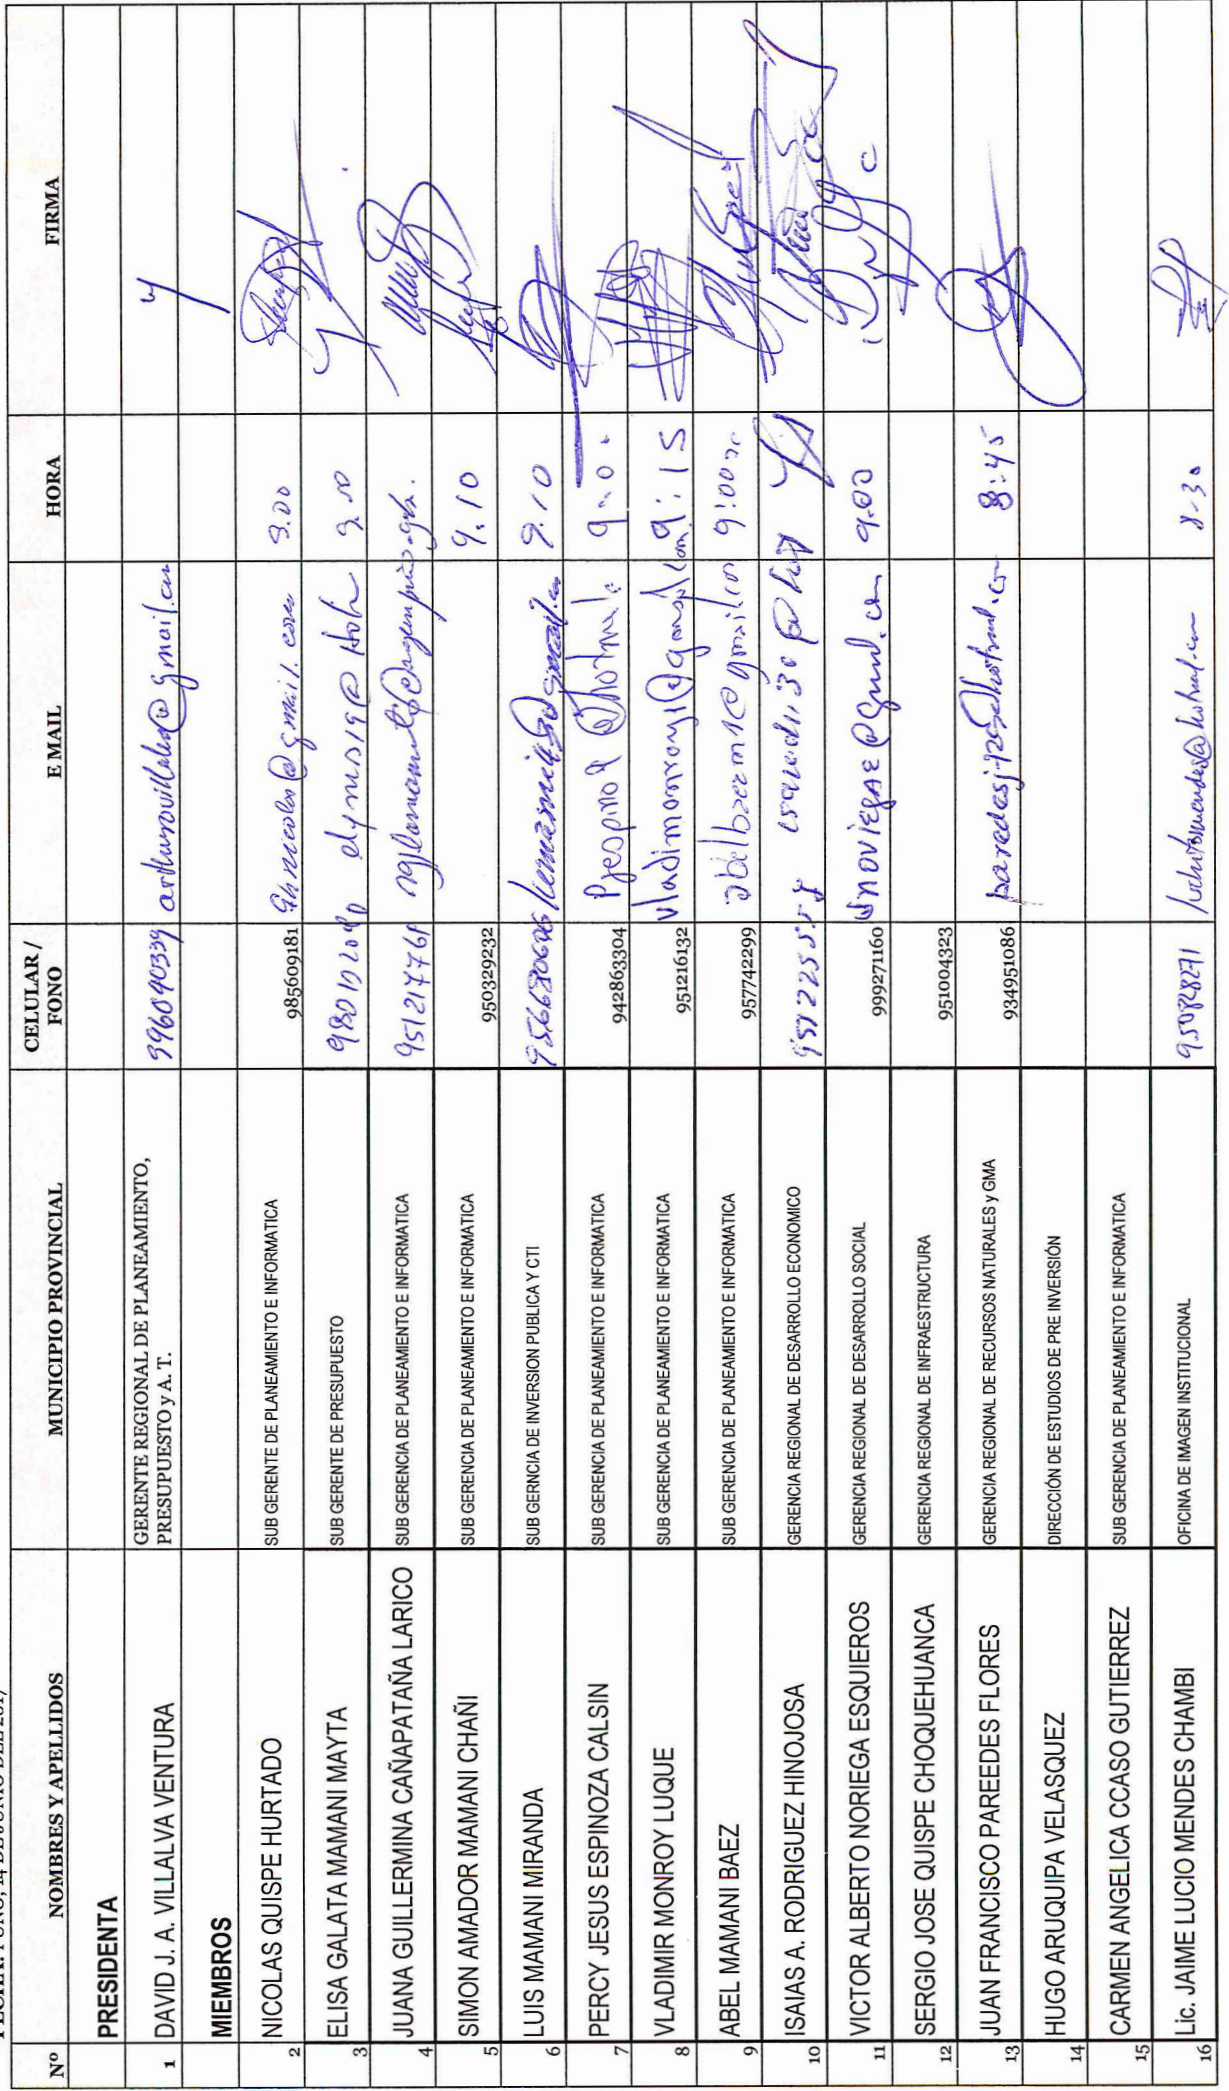 Nº NOMBRES Y APELLIDOS MUNICIPIO PROVINCIAL CELULAR / FONO E MAIL HORA FIRMA
PRESIDENTA
1 DAVID J. A. VILLALVA VENTURA GERENTE REGIONAL DE PLANEAMIENTO, PRESUPUESTO y A. T. 996040339
MIEMBROS
2 NICOLAS QUISPE HURTADO SUB GERENTE DE PLANEAMIENTO E INFORMATICA 985609181 9.00
3 ELISA GALATA MAMANI MAYTA SUB GERENTE DE PRESUPUESTO
4 JUANA GUILLERMINA CAÑAPATAÑA LARICO SUB GERENCIA DE PLANEAMIENTO E INFORMATICA
5 SIMON AMADOR MAMANI CHAÑI SUB GERENCIA DE PLANEAMIENTO E INFORMATICA 950329232 9.10
6 LUIS MAMANI MIRANDA SUB GERENCIA DE INVERSION PUBLICA Y CTI 9.10
7 PERCY JESUS ESPINOZA CALSIN SUB GERENCIA DE PLANEAMIENTO E INFORMATICA 942863304
8 VLADIMIR MONROY LUQUE SUB GERENCIA DE PLANEAMIENTO E INFORMATICA 951216132 9:15
9 ABEL MAMANI BAEZ SUB GERENCIA DE PLANEAMIENTO E INFORMATICA 957742299
10 ISAIAS A. RODRIGUEZ HINOJOSA GERENCIA REGIONAL DE DESARROLLO ECONOMICO
11 VICTOR ALBERTO NORIEGA ESQUIEROS GERENCIA REGIONAL DE DESARROLLO SOCIAL 999271160 9.00
12 SERGIO JOSE QUISPE CHOQUEHUANCA GERENCIA REGIONAL DE INFRAESTRUCTURA 951004323
13 JUAN FRANCISCO PAREEDES FLORES GERENCIA REGIONAL DE RECURSOS NATURALES y GMA 934951086 8:45
14 HUGO ARUQUIPA VELASQUEZ DIRECCIÓN DE ESTUDIOS DE PRE INVERSIÓN
15 CARMEN ANGELICA CCASO GUTIERREZ SUB GERENCIA DE PLANEAMIENTO E INFORMATICA
16 Lic. JAIME LUCIO MENDES CHAMBI OFICINA DE IMAGEN INSTITUCIONAL 950828271 8-30